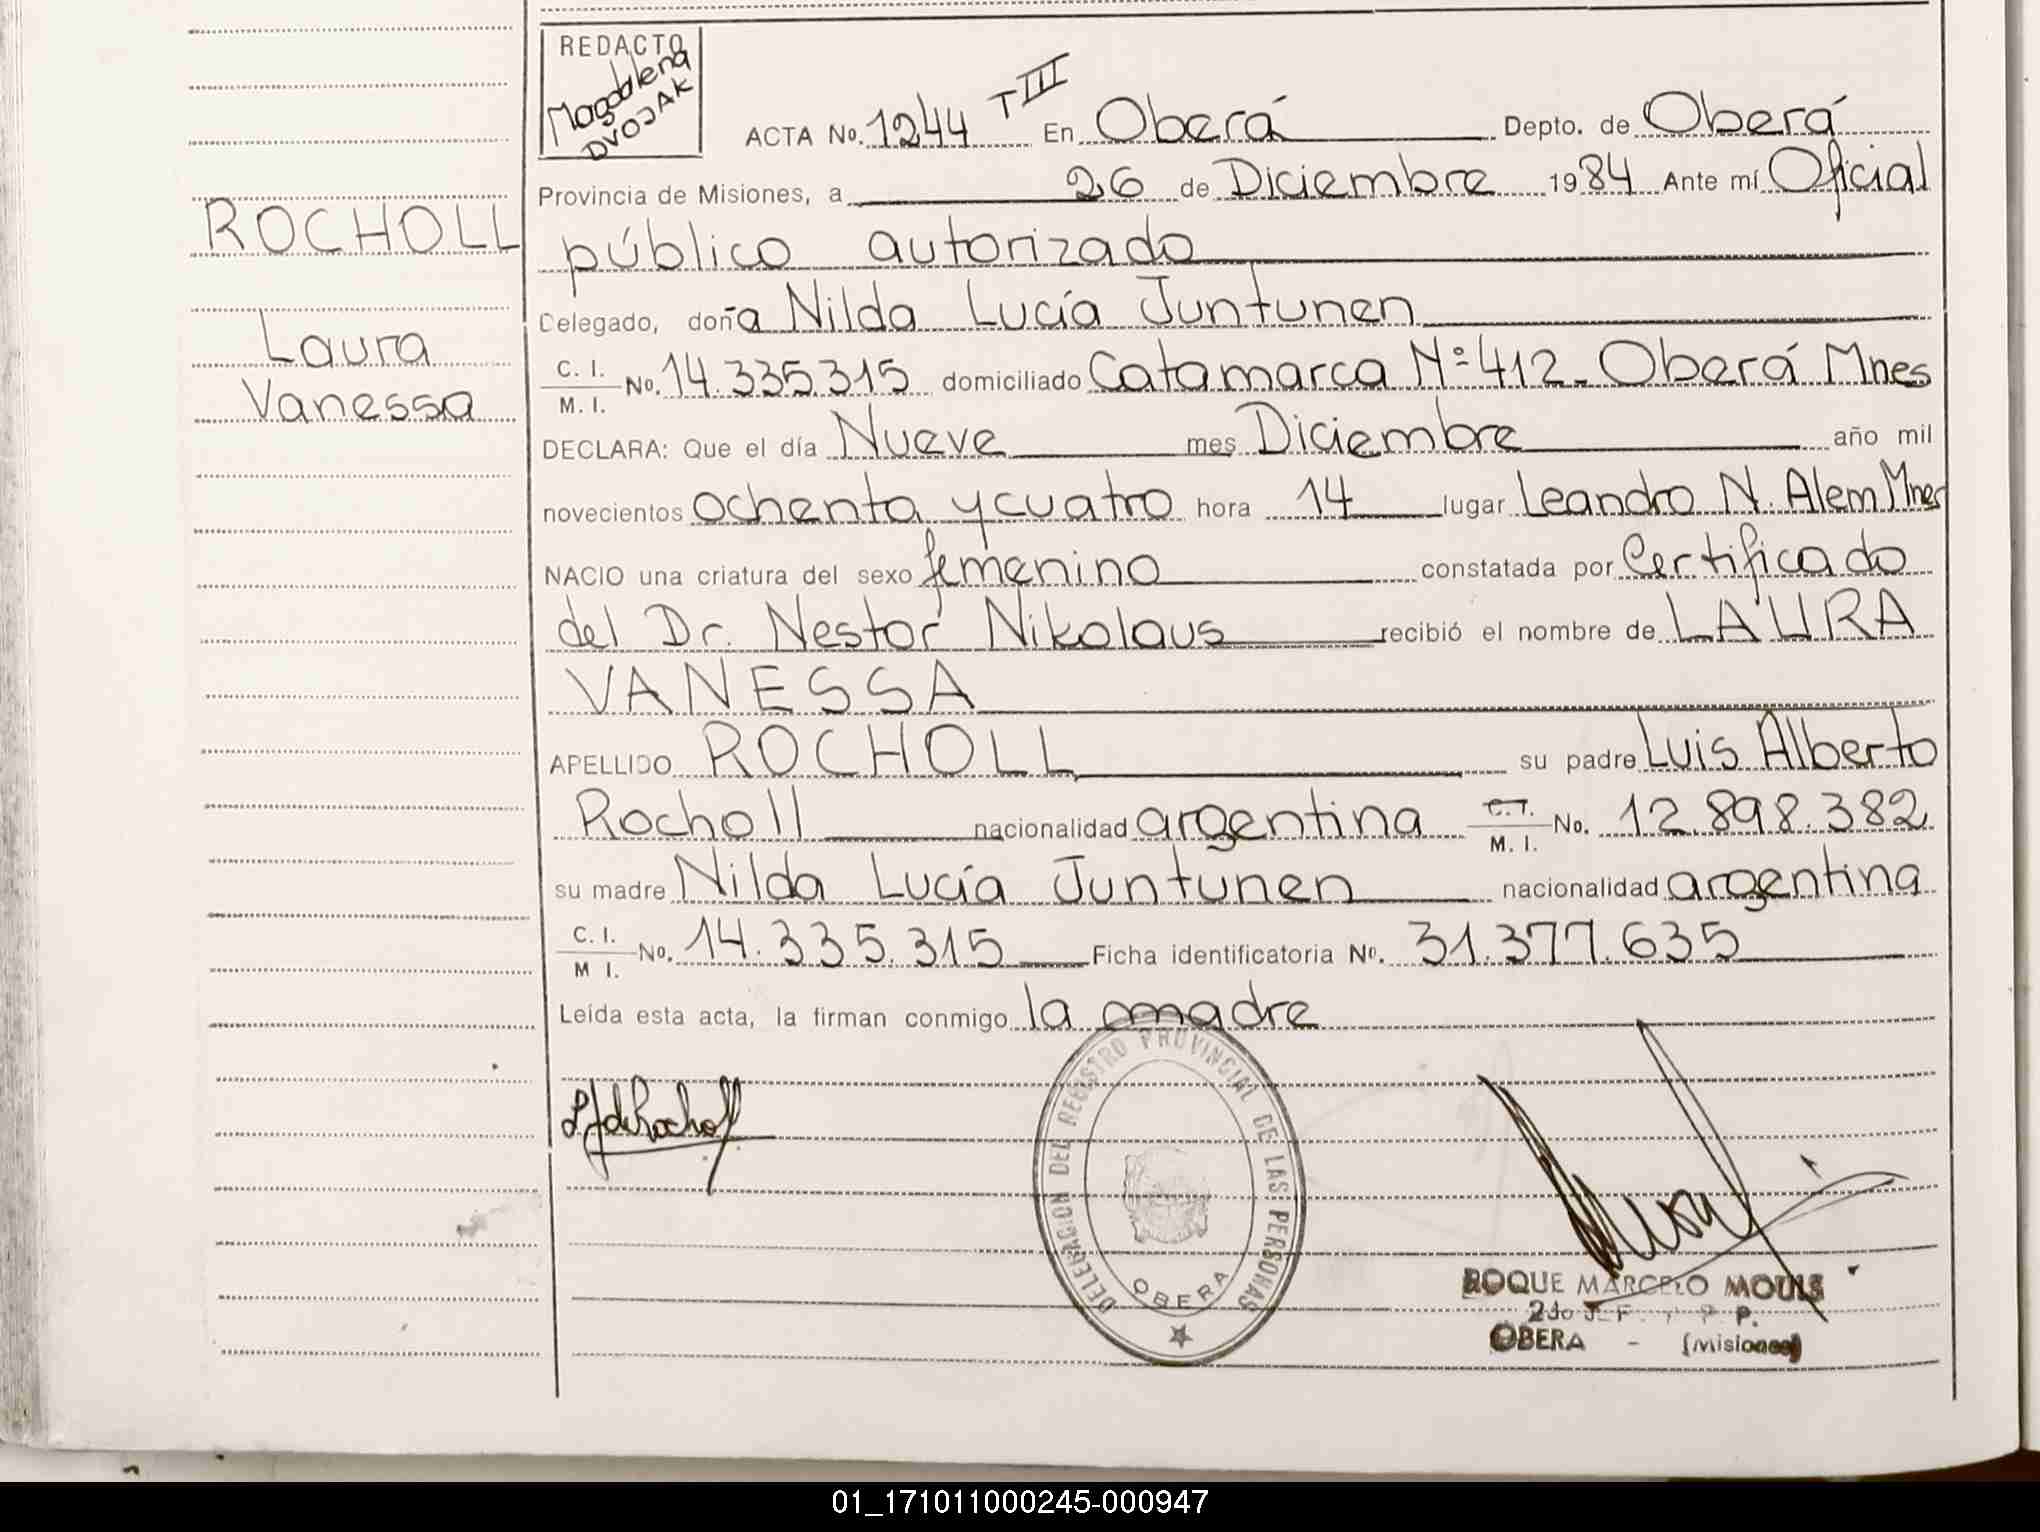 REDACTO
Magdalena
DVOJAK
ACTA No. 1244 T III En Oberá Depto. de Oberá
Provincia de Misiones, a 26 de Diciembre 1984 Ante mí Oficial
ROCHOLL
público autorizado
Delegado, doña Nilda Lucía Juntunen
Laura
C. I.
M. I. No. 14.335.315 domiciliado Catamarca Nº 412. Oberá Mnes
Vanessa
DECLARA: Que el día Nueve mes Diciembre año mil
novecientos ochenta y cuatro hora 14 lugar Leandro N. Alem Mnes
NACIO una criatura del sexo femenino constatada por Certificado
del Dr. Nestor Nikolaus recibió el nombre de LAURA
VANESSA
APELLIDO ROCHOLL su padre Luis Alberto
Rocholl nacionalidad argentina C.I.
M. I. No. 12.898.382
su madre Nilda Lucía Juntunen nacionalidad argentina
C. I.
M I. No. 14.335.315 Ficha identificatoria No. 31.377.635
Leída esta acta, la firman conmigo la madre
DELEGACION DEL REGISTRO PROVINCIAL DE LAS PERSONAS
OBERA
ROQUE MARCELO MOULS
2do J
P.
OBERA - (Misiones)
01_171011000245-000947